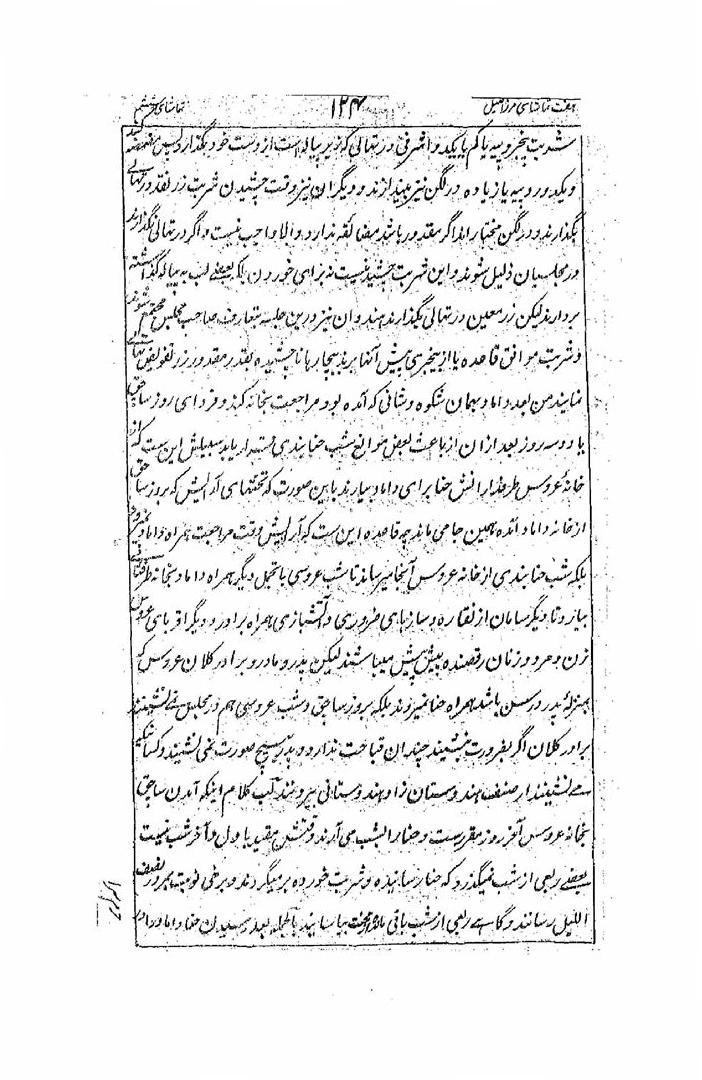 هفت تماشای مرزا قتیل ۱۲۴ تماشای هشتم
شربت پنجروپیه یا کم یا یکدو اشرفی در تهالی که زیر پیاله است از دست خود بگذارد پس مضمضه کند
و یکدو روپیه یا زیاده در لگن نیز بیندازند و دیگران نیز وقت چشیدن شربت زر نقد در تهالی
بگذارند و در لگن مختارند اگر مقدور باشد مضائقه ندارد و الا واجب نیست و اگر در تهالی نگذارند
در مجلسیان ذلیل شوند و این شربت چشیدنیست نه برای خوردن بلکه بعضے لب به پیاله گذاشته
بردارند لیکن زر معین در تهالی بگذارند هندوان نیز درین جلسه بتعارف صاحب مجلس مجتمع شوند
و شربت موافق قاعده یا از بیخبری پیش آنها برند بیچارها ناچشیده بقدر مقدور زر تفویض تهالی
نمایند من بعد داماد بهمان شکوه و شانی که آمده بود مراجعت بخانه کند و فردای روز ساچق
یا دو سه روز بعد ازان از باعث بعض موانع شب حنابندی قرار یابد سبیلش این ست که از
خانهٔ عروس طرفدارانش حنا برای داماد بیارند باین صورت که تختهای آرایش که بروز ساچق
از خانه داماد آمده همین جا می ماند چه قاعده این ست که آرایش وقت مراجعت همراه داماد نمیرود
بلکه شب حنابندی از خانه عروس آنجا میرساند تا شب عروسی با تجمل دیگر همراه داماد بخانه طرفثانی
بیارد تا دیگر سامان از نقاره و سازهای ضروری و آتشبازی همراه برادر و دیگر اقربای عروس
زن و مرد و زنان رقصنده پیش پیش میباشند لیکن پدر و مادر و برادر کلان عروس که
بمنزلهٔ پدر در سن باشد همراه حنا نمیروند بلکه بروز ساچق و شب عروسی هم در مجلس نمے نشینند
برادر کلان اگر بضرورت بنشیند چندان قباحت ندارد و پدر بهیچ صورت نمی نشیند و کسانیکه
مے نشینند از صنف هندوستان زا و هندوستانی بیرونند لب کلام اینکه آمدن ساچق
بخانهٔ عروس آخر روز مقررست و حنا را بشب می آرند وقتش مقید باول و آخر شب نیست
بعضے ربعی از شب نمیگذرد که حنا رسانیده و شربت خورده برمیگردند و برخی نوبت بمرور نصف
اللیل رسانند و گاہے ربعی از شب باقی مانده بیایند بالجمله بعد رسیدن حنا داماد را در